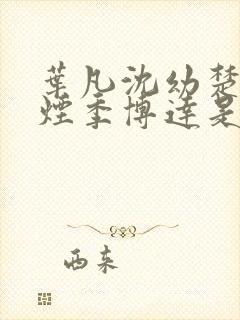 葉凡沈幼楚
煙季博達是
西来